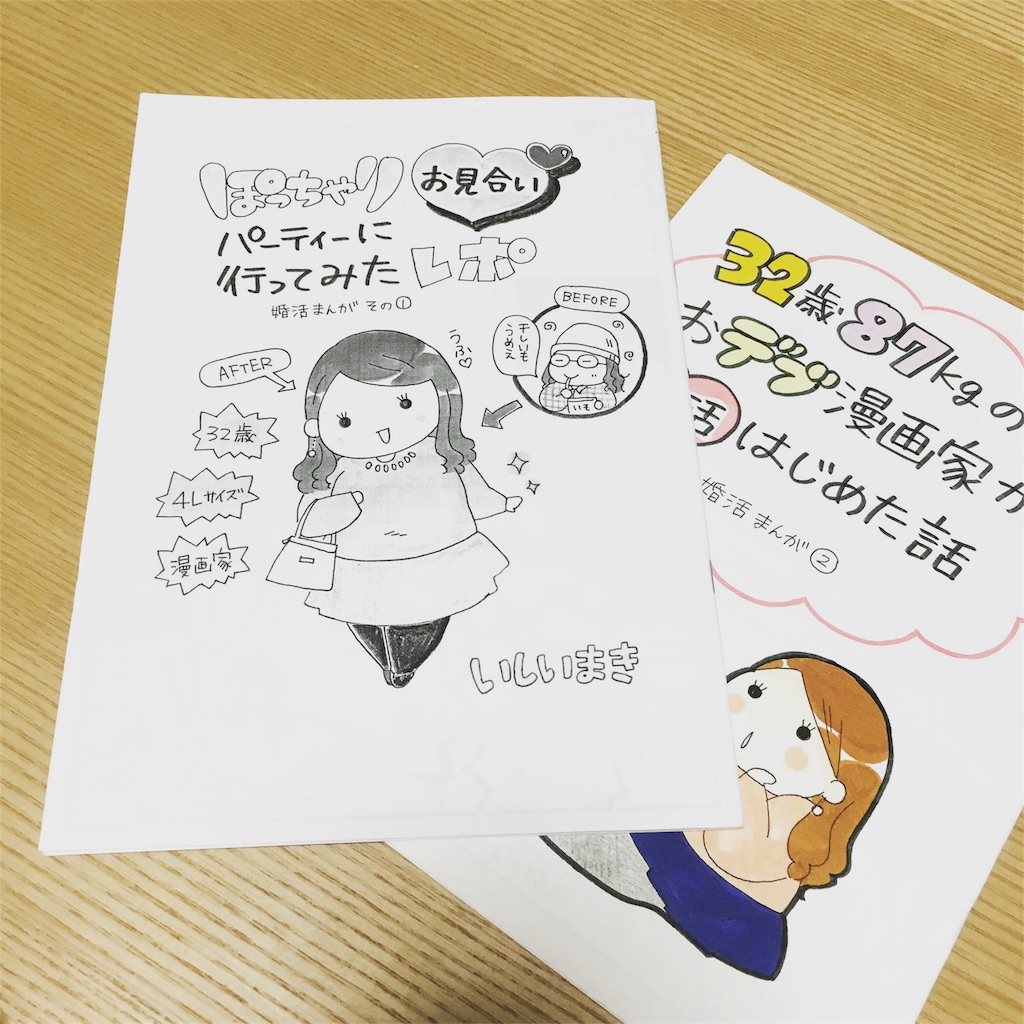 ぽっちゃり お見合い
パーティーに
行ってみた レポ
婚活まんが その①
BEFORE
干しいも
うめえ
いも
うふ♡
AFTER
32歳
4Lサイズ
漫画家
いしいまき
32歳 87kgの
おデブ漫画家が
活はじめた話
婚活まんが②